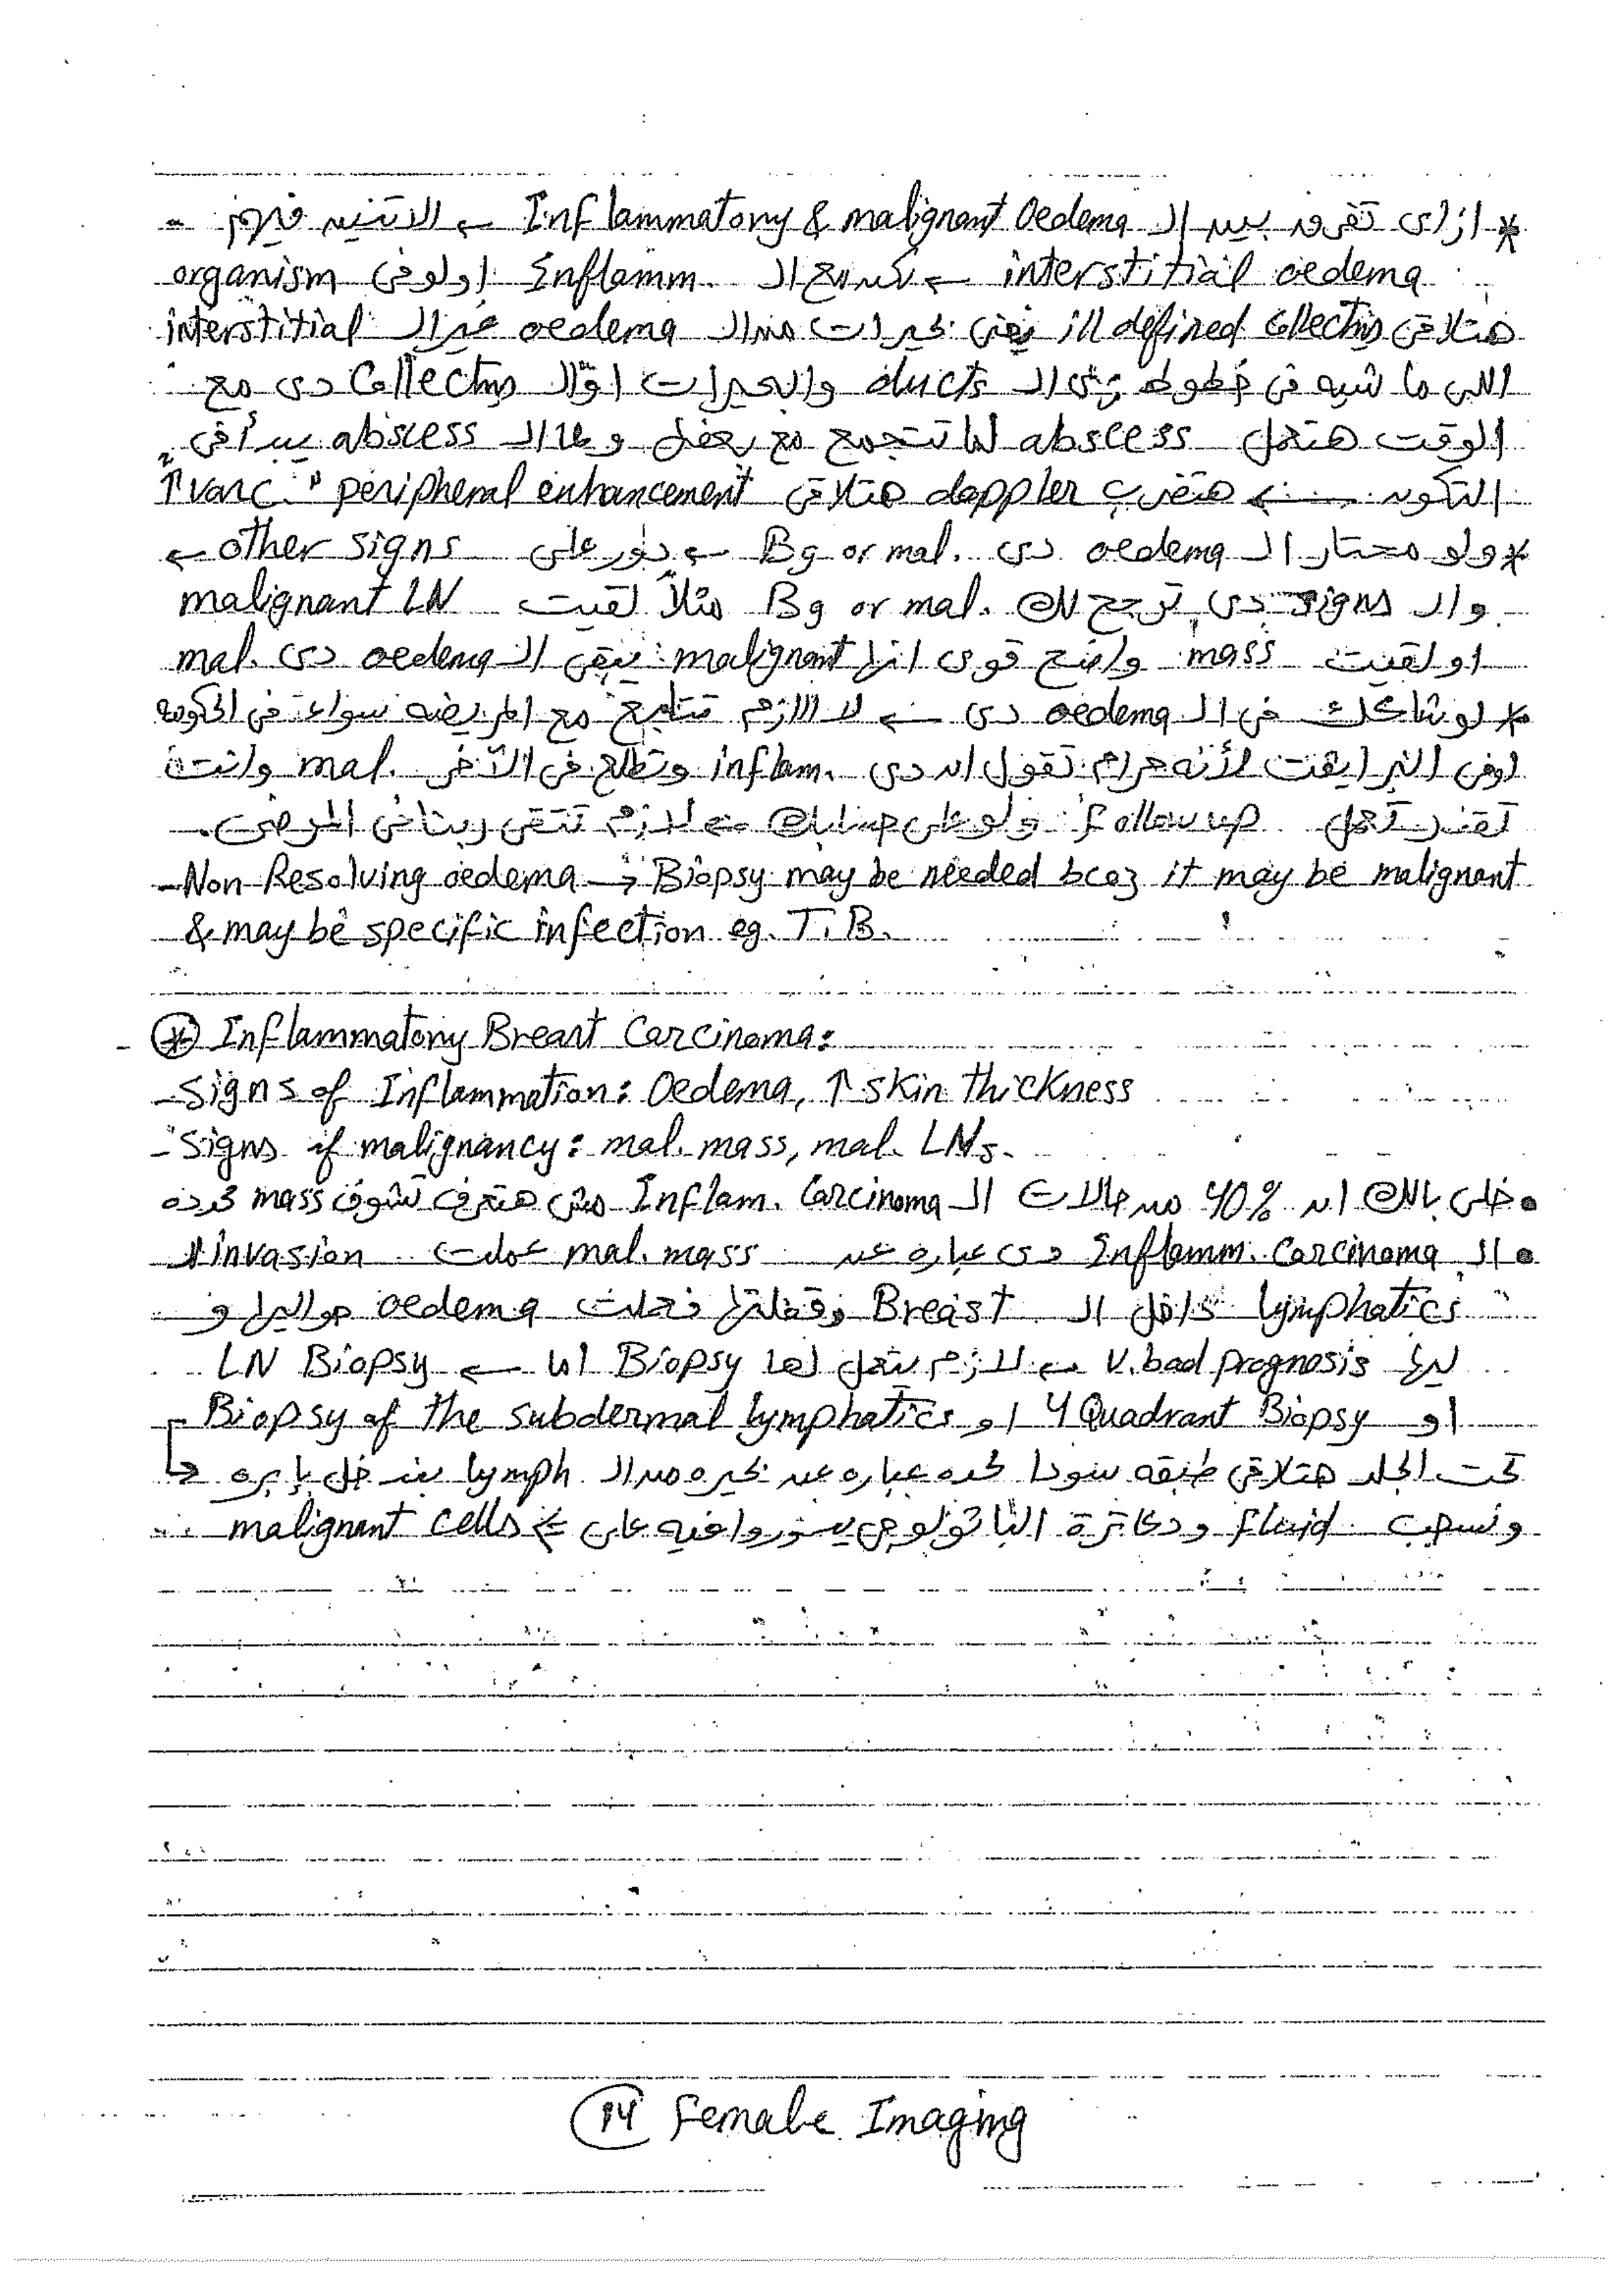 * ازاى تفرق بين الـ Inflammatory & malignant Oedema ← الاتنين فيهم -
interstitial oedema ← لكن مع الـ Inflamm. او لو فى organism
هتلاقى ill defined collectns يعنى بحيرات من الـ oedema غير الـ interstitial
اللى ماشيه فى خطوط زى الـ ducts والبحيرات او الـ Collectns دى مع
الوقت هتعمل abscess لما تتجمع مع بعض و لما الـ abscess يبدأ فى
التكون ← هتضرب doppler هتلاقى peripheral enhancement " ↑ varc.
* ولو محتار الـ oedema دى Bg or mal. ← دور على other signs ←
والـ signs دى ترجح لك Bg or mal. مثلاً لقيت malignant LN
او لقيت mass واضح قوى انها malignant يبقى الـ oedema دى mal.
* لو شاكك فى الـ oedema دى ← لا لازم تتابع مع المريضه سواء فى الحكومه
اوفى البرايفت لأنه حرام تقول ان دى inflam. وتطلع فى الآخر mal. وانت
تقدر تعمل Follow up ولو على حسابك ← لازم تتقى ربنا فى المرضى.
- Non Resolving oedema → Biopsy may be needed bcoz it may be malignant
& may be specific infection eg. T.B.
* Inflammatory Breast Carcinoma:
- Signs of Inflammation: Oedema, ↑ skin thickness
- Signs of malignancy: mal. mass, mal. LNs.
• خلى بالك ان 40% من حالات الـ Inflam. Carcinoma مش هتعرف تشوف mass كده
• الـ Inflamm. Carcinoma دى عباره عن mal. mass عملت invasion للـ
lymphatics داخل الـ Breast وقفلتها فعملت oedema حواليها و
ليها v. bad prognosis ← لازم بتعمل لها Biopsy اما ← LN Biopsy
او 4 Quadrant Biopsy او Biopsy of the subdermal lymphatics
تحت الجلد هتلاقى طبقه سودا كده عباره عن بحيره من الـ lymph بندخل بإبره
ونسحب fluid ودكاترة الباثولوجى يدوروا فيه على malignant cells
14 Female Imaging